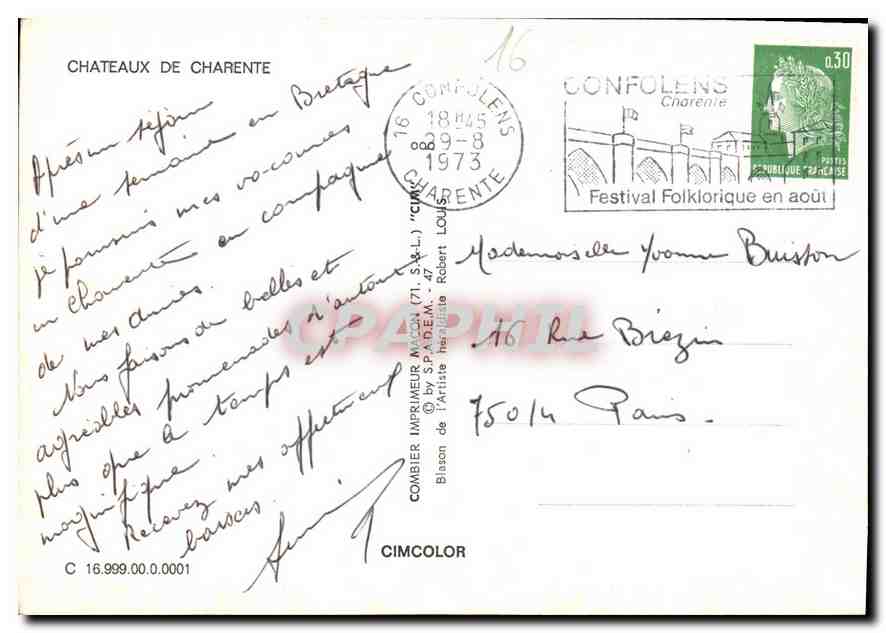 CHATEAUX DE CHARENTE
Après un séjour
d'une semaine en Bretagne
je poursuis mes vacances
en Charente en compagnie
de mes amies.
Nous faisons de belles et
agréables promenades d'autant
plus que le temps est
magnifique.
Recevez mes affectueux
baisers.
C 16.999.00.0.0001
CIMCOLOR
COMBIER IMPRIMEUR MACON (71, S.-&-L.) "CIM"
© by S.P.A.D.E.M. - 47
Blason de l'Artiste héraldiste Robert LOUIS.
16
16 CONFOLENS
18H45
29-8
1973
CHARENTE
CONFOLENS
Charente
Festival Folklorique en août
0,30
POSTES
REPUBLIQUE FRANÇAISE
Mademoiselle Yvonne Buisson
16 Rue Brézin
75014 Paris.
CPAPHIL